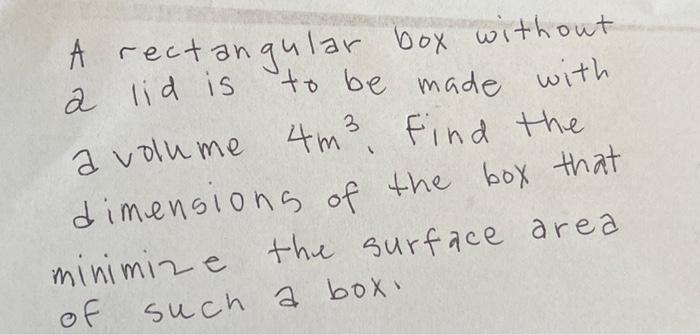 A rectangular box without
a lid is to be made with
a volume 4m³. Find the
dimensions of the box that
minimize the surface area
of such a box.